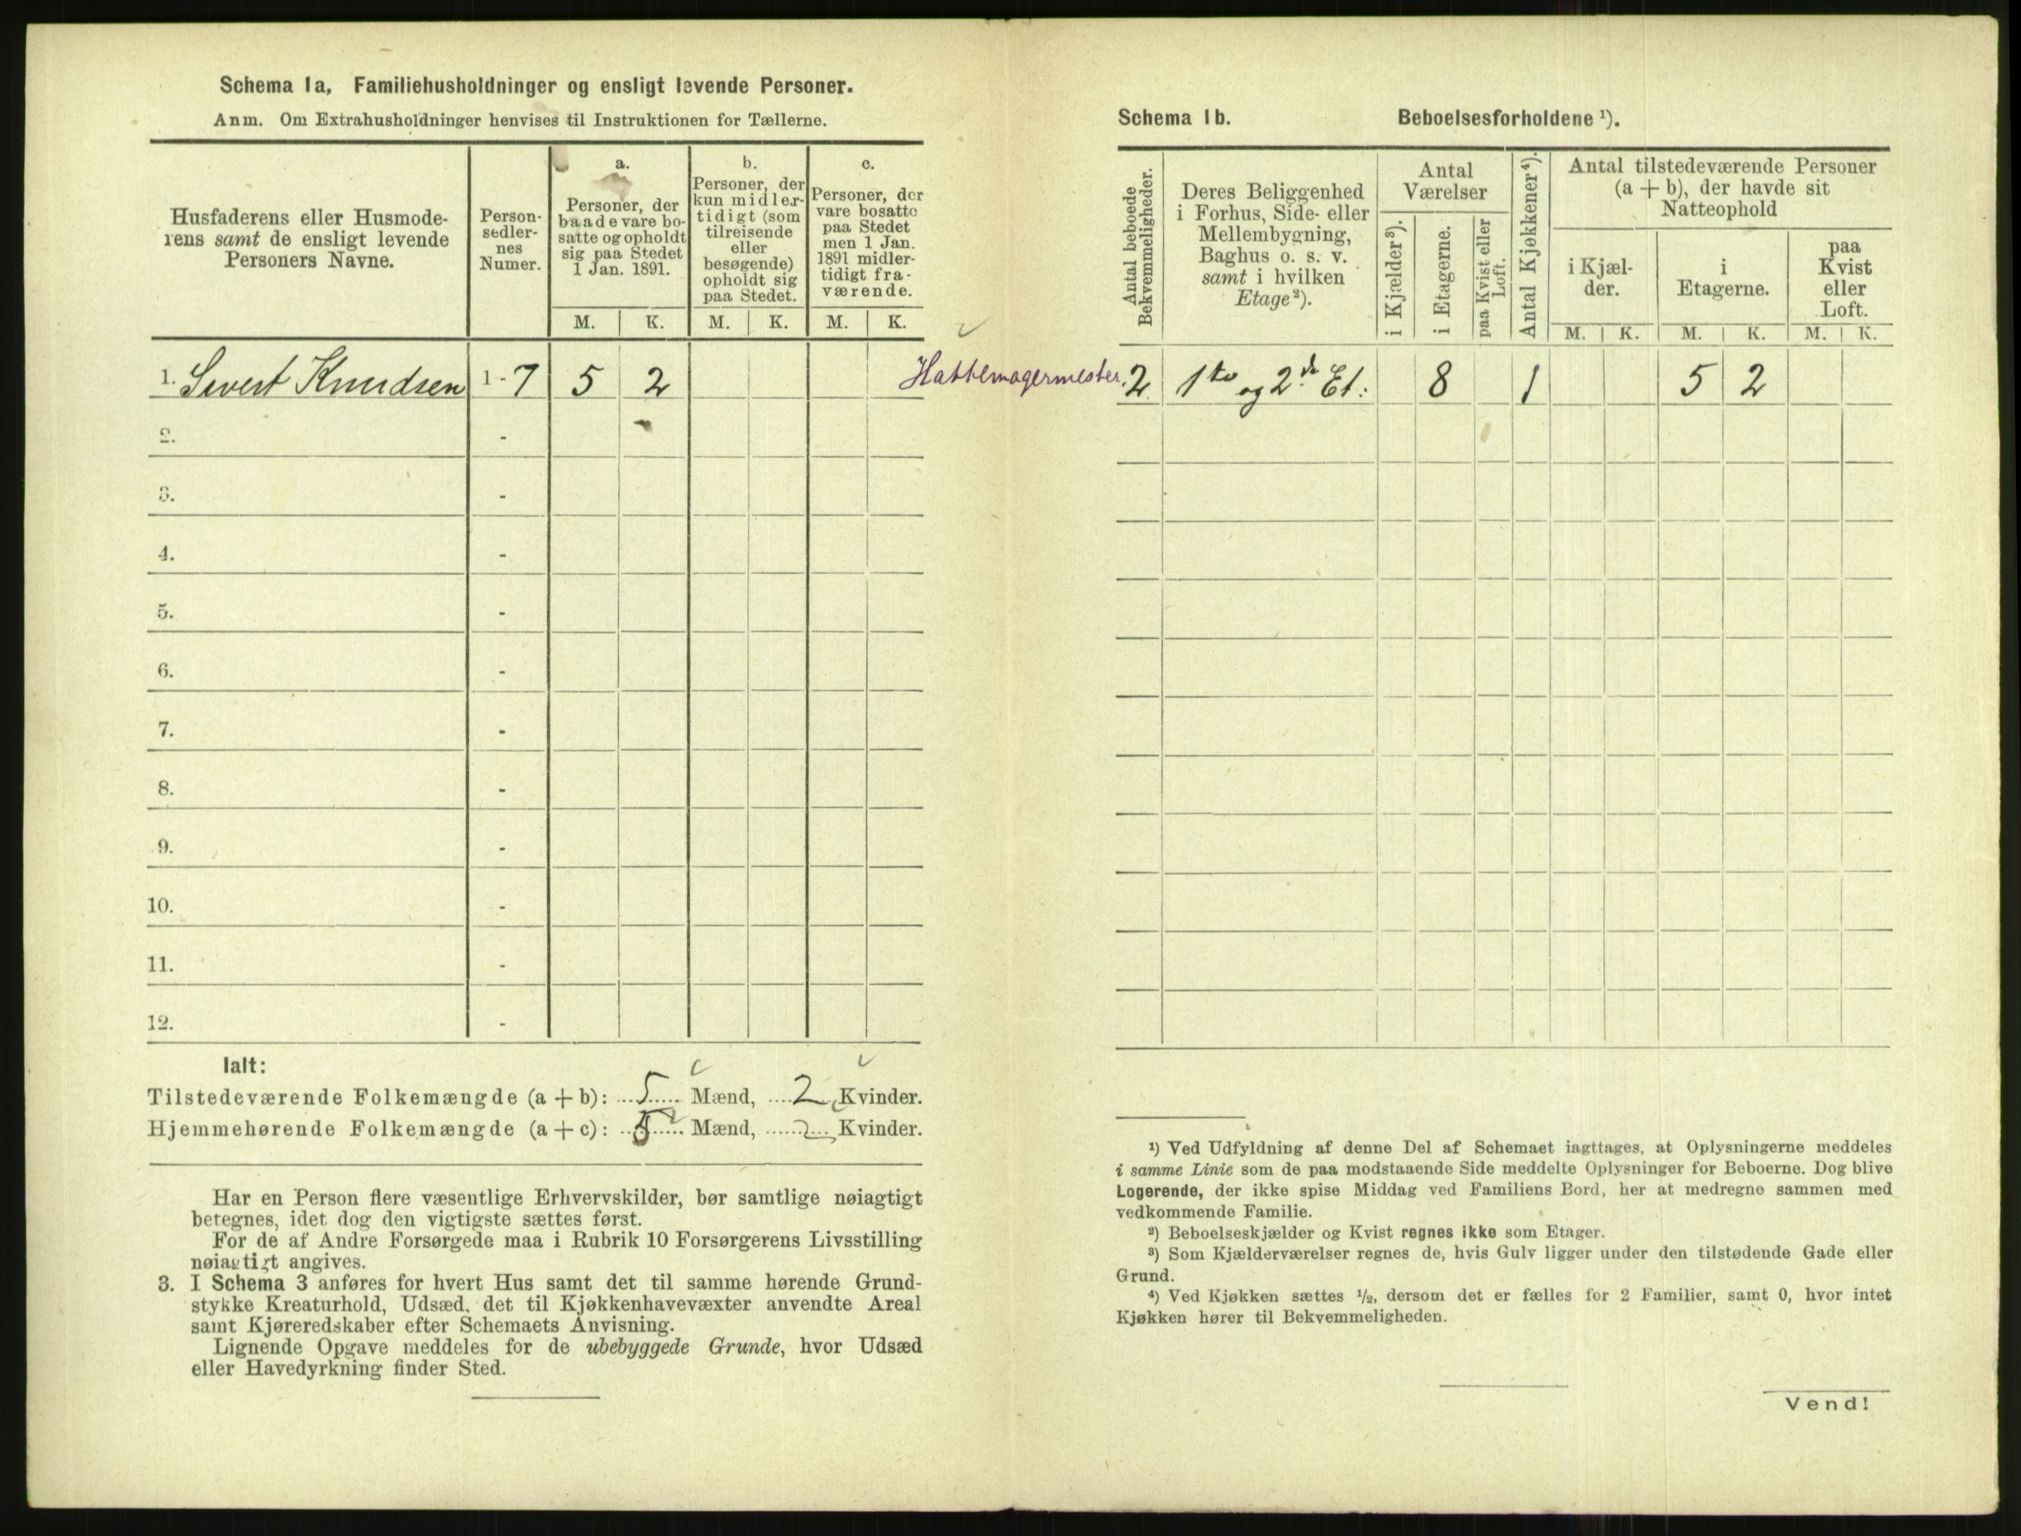 Schema 1a. Familiehusholdninger og ensligt levende Personer.
Anm. Om Extrahusholdninger henvises til Instruktionen for Tællerne.
Husfaderens eller Husmode-
rens samt de ensligt levende
Personers Navne.
Person-
sedler-
nes
Numer.
a.
Personer, der
baade vare bo-
satte og opholdt
sig paa Stedet
1 Jan. 1891.
b.
Personer, der
kun midler-
tidigt (som
tilreisende
eller
besøgende)
opholdt sig
paa Stedet.
c.
Personer, der
vare bosatte
paa Stedet
men 1 Jan.
1891 midler-
tidigt fra-
værende.
M. K. M. K. M. K.
1. Sivert Knudsen 1 - 7 5 2 Hattemagermester.
2. -
3. -
4. -
5. -
6. -
7. -
8. -
9. -
10. -
11. -
12. -
Ialt:
Tilstedeværende Folkemængde (a + b): 5 Mænd, 2 Kvinder.
Hjemmehørende Folkemængde (a + c): 5 Mænd, 2 Kvinder.
Har en Person flere væsentlige Erhvervskilder, bør samtlige nøiagtigt
betegnes, idet dog den vigtigste sættes først.
For de af Andre Forsørgede maa i Rubrik 10 Forsørgerens Livsstilling
nøiagtigt angives.
3. I Schema 3 anføres for hvert Hus samt det til samme hørende Grund-
stykke Kreaturhold, Udsæd, det til Kjøkkenhavevæxter anvendte Areal
samt Kjøreredskaber efter Schemaets Anvisning.
Lignende Opgave meddeles for de ubebyggede Grunde, hvor Udsæd
eller Havedyrkning finder Sted.
Schema 1b. Beboelsesforholdene ¹).
Antal beboede
Bekvemmeligheder.
Deres Beliggenhed
i Forhus, Side- eller
Mellembygning,
Baghus o. s. v.
samt i hvilken
Etage ²).
Antal
Værelser
i Kjælder ³).
i Etagerne.
paa Kvist eller
Loft.
Antal Kjøkkener ⁴).
Antal tilstedeværende Personer
(a + b), der havde sit
Natteophold
i Kjæl-
der.
i
Etagerne.
paa
Kvist
eller
Loft.
M. K. M. K. M. K.
2 1ste og 2de Et. 8 1 5 2
¹) Ved Udfyldning af denne Del af Schemaet iagttages, at Oplysningerne meddeles
i samme Linie som de paa modstaaende Side meddelte Oplysninger for Beboerne. Dog blive
Logerende, der ikke spise Middag ved Familiens Bord, her at medregne sammen med
vedkommende Familie.
²) Beboelseskjælder og Kvist regnes ikke som Etager.
³) Som Kjælderværelser regnes de, hvis Gulv ligger under den tilstødende Gade eller
Grund.
⁴) Ved Kjøkken sættes ½, dersom det er fælles for 2 Familier, samt 0, hvor intet
Kjøkken hører til Bekvemmeligheden.
Vend!